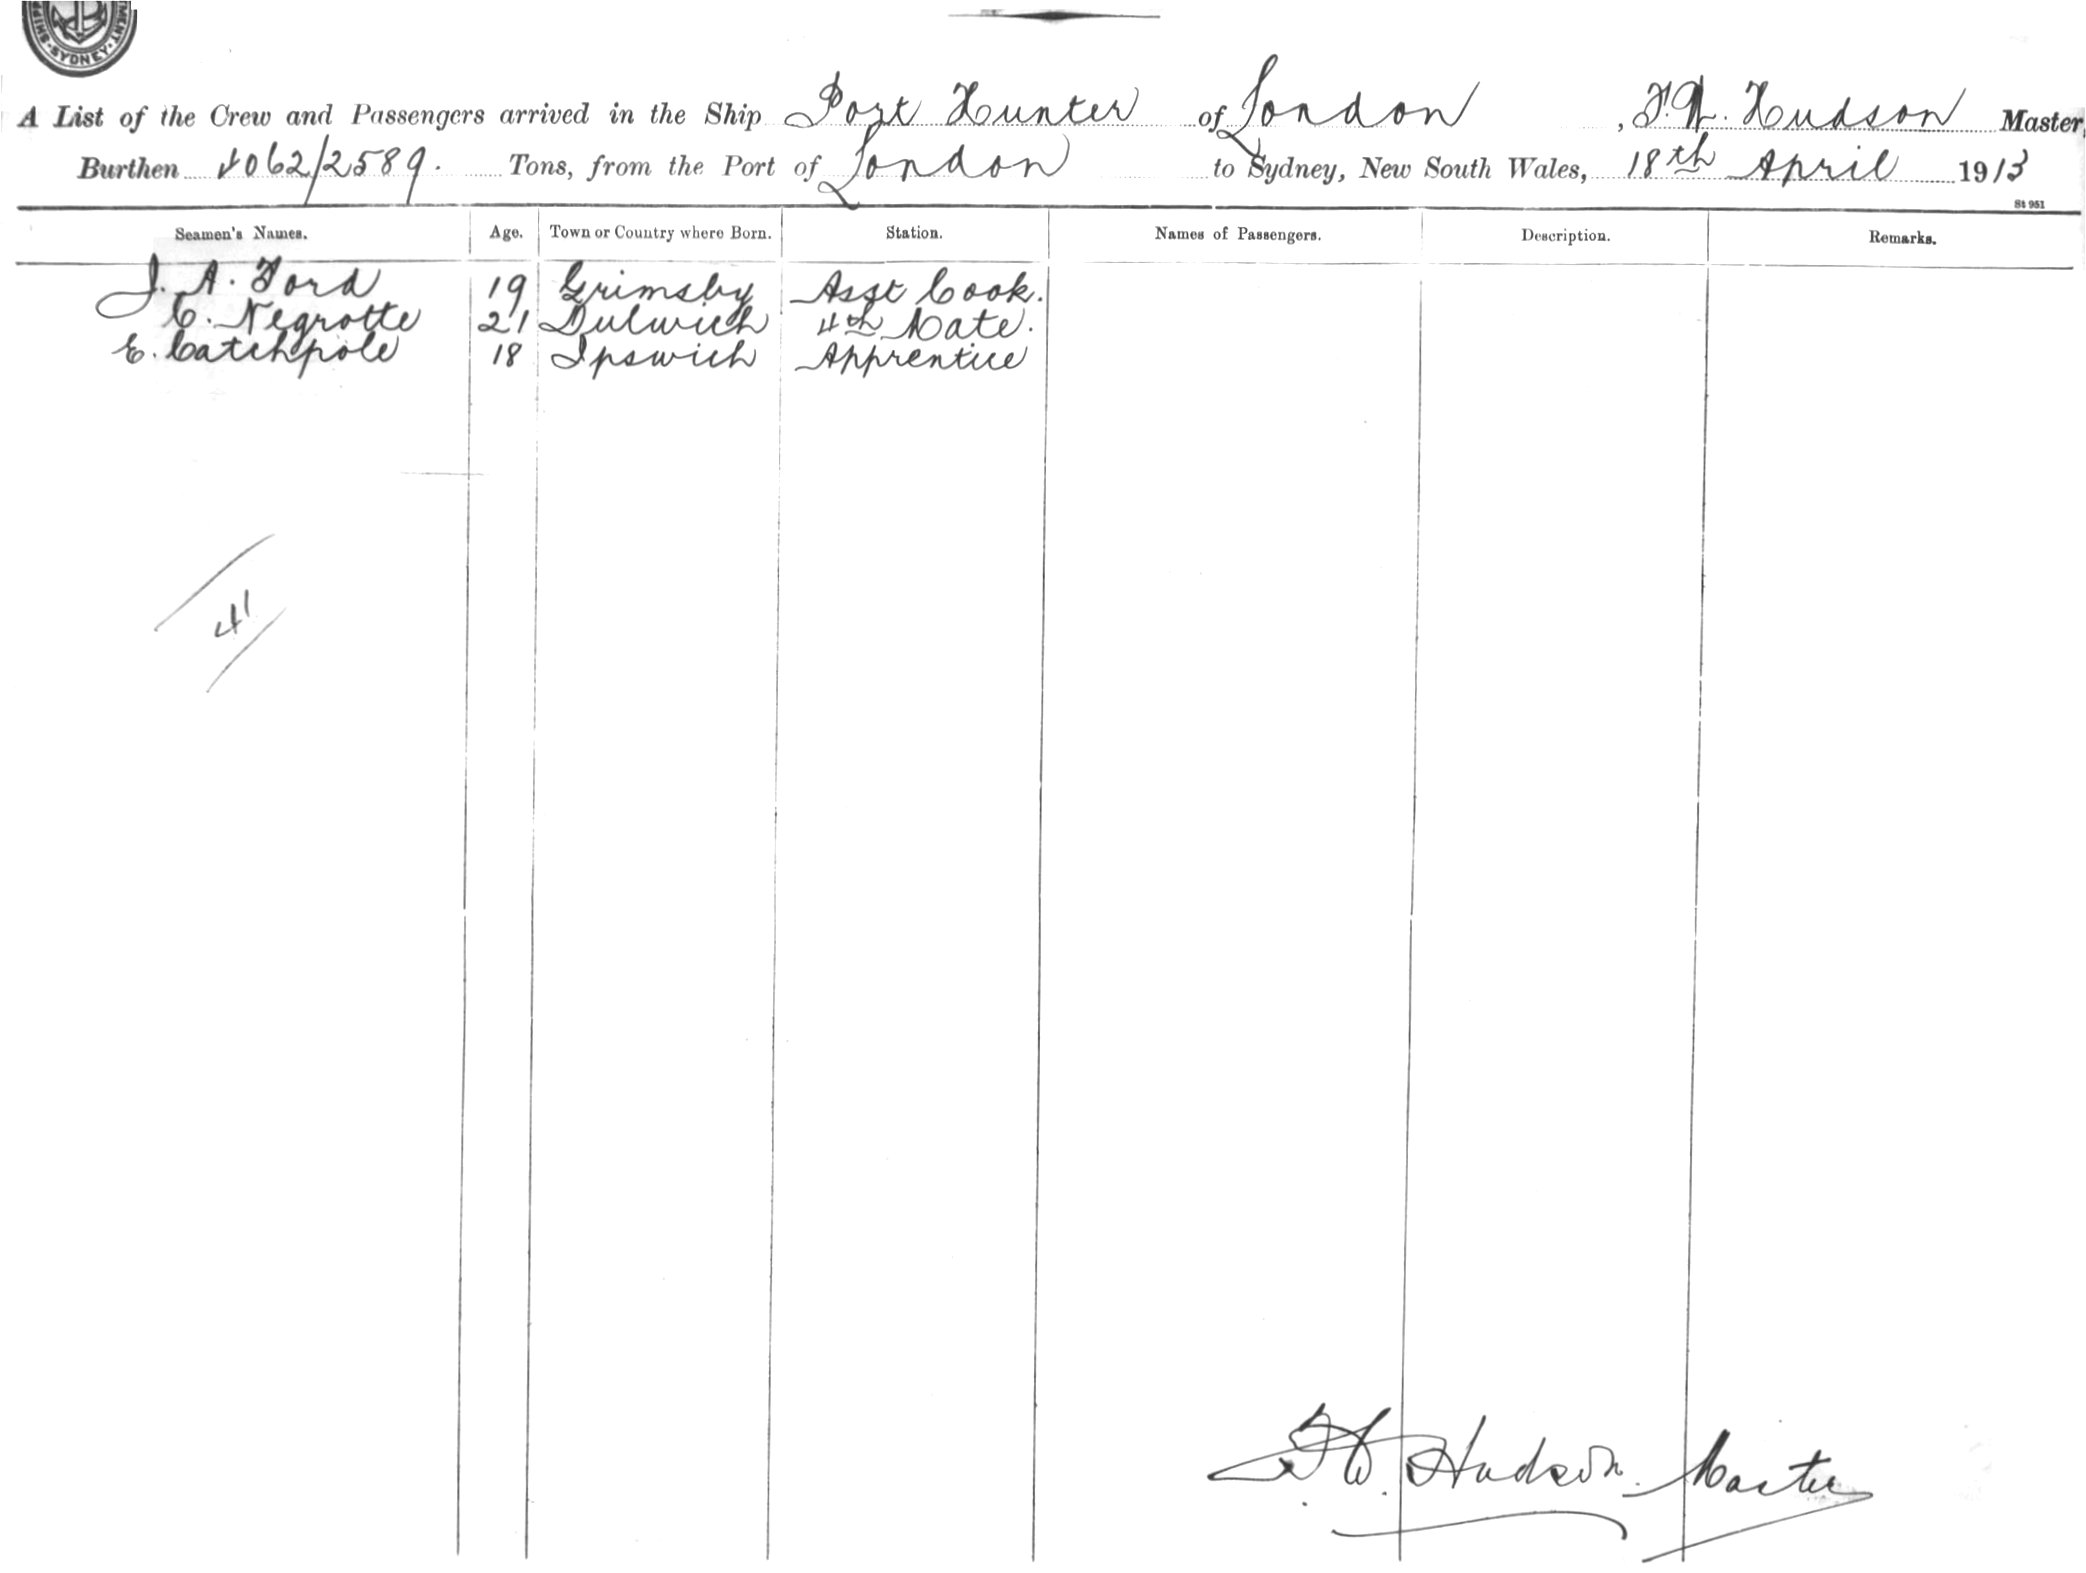 SHIPP · SYDNEY · MENT
A List of the Crew and Passengers arrived in the Ship Port Hunter of London , F. W. Hudson Master,
Burthen 4062/2589. Tons, from the Port of London to Sydney, New South Wales, 18th April 1913
St 951
Seamen's Names. Age. Town or Country where Born. Station. Names of Passengers. Description. Remarks.
J. A. Ford 19 Grimsby Asst Cook.
C. Negrotte 21 Dulwich 4th Mate.
E. Catchpole 18 Ipswich Apprentice
41
F. W. Hudson. Master